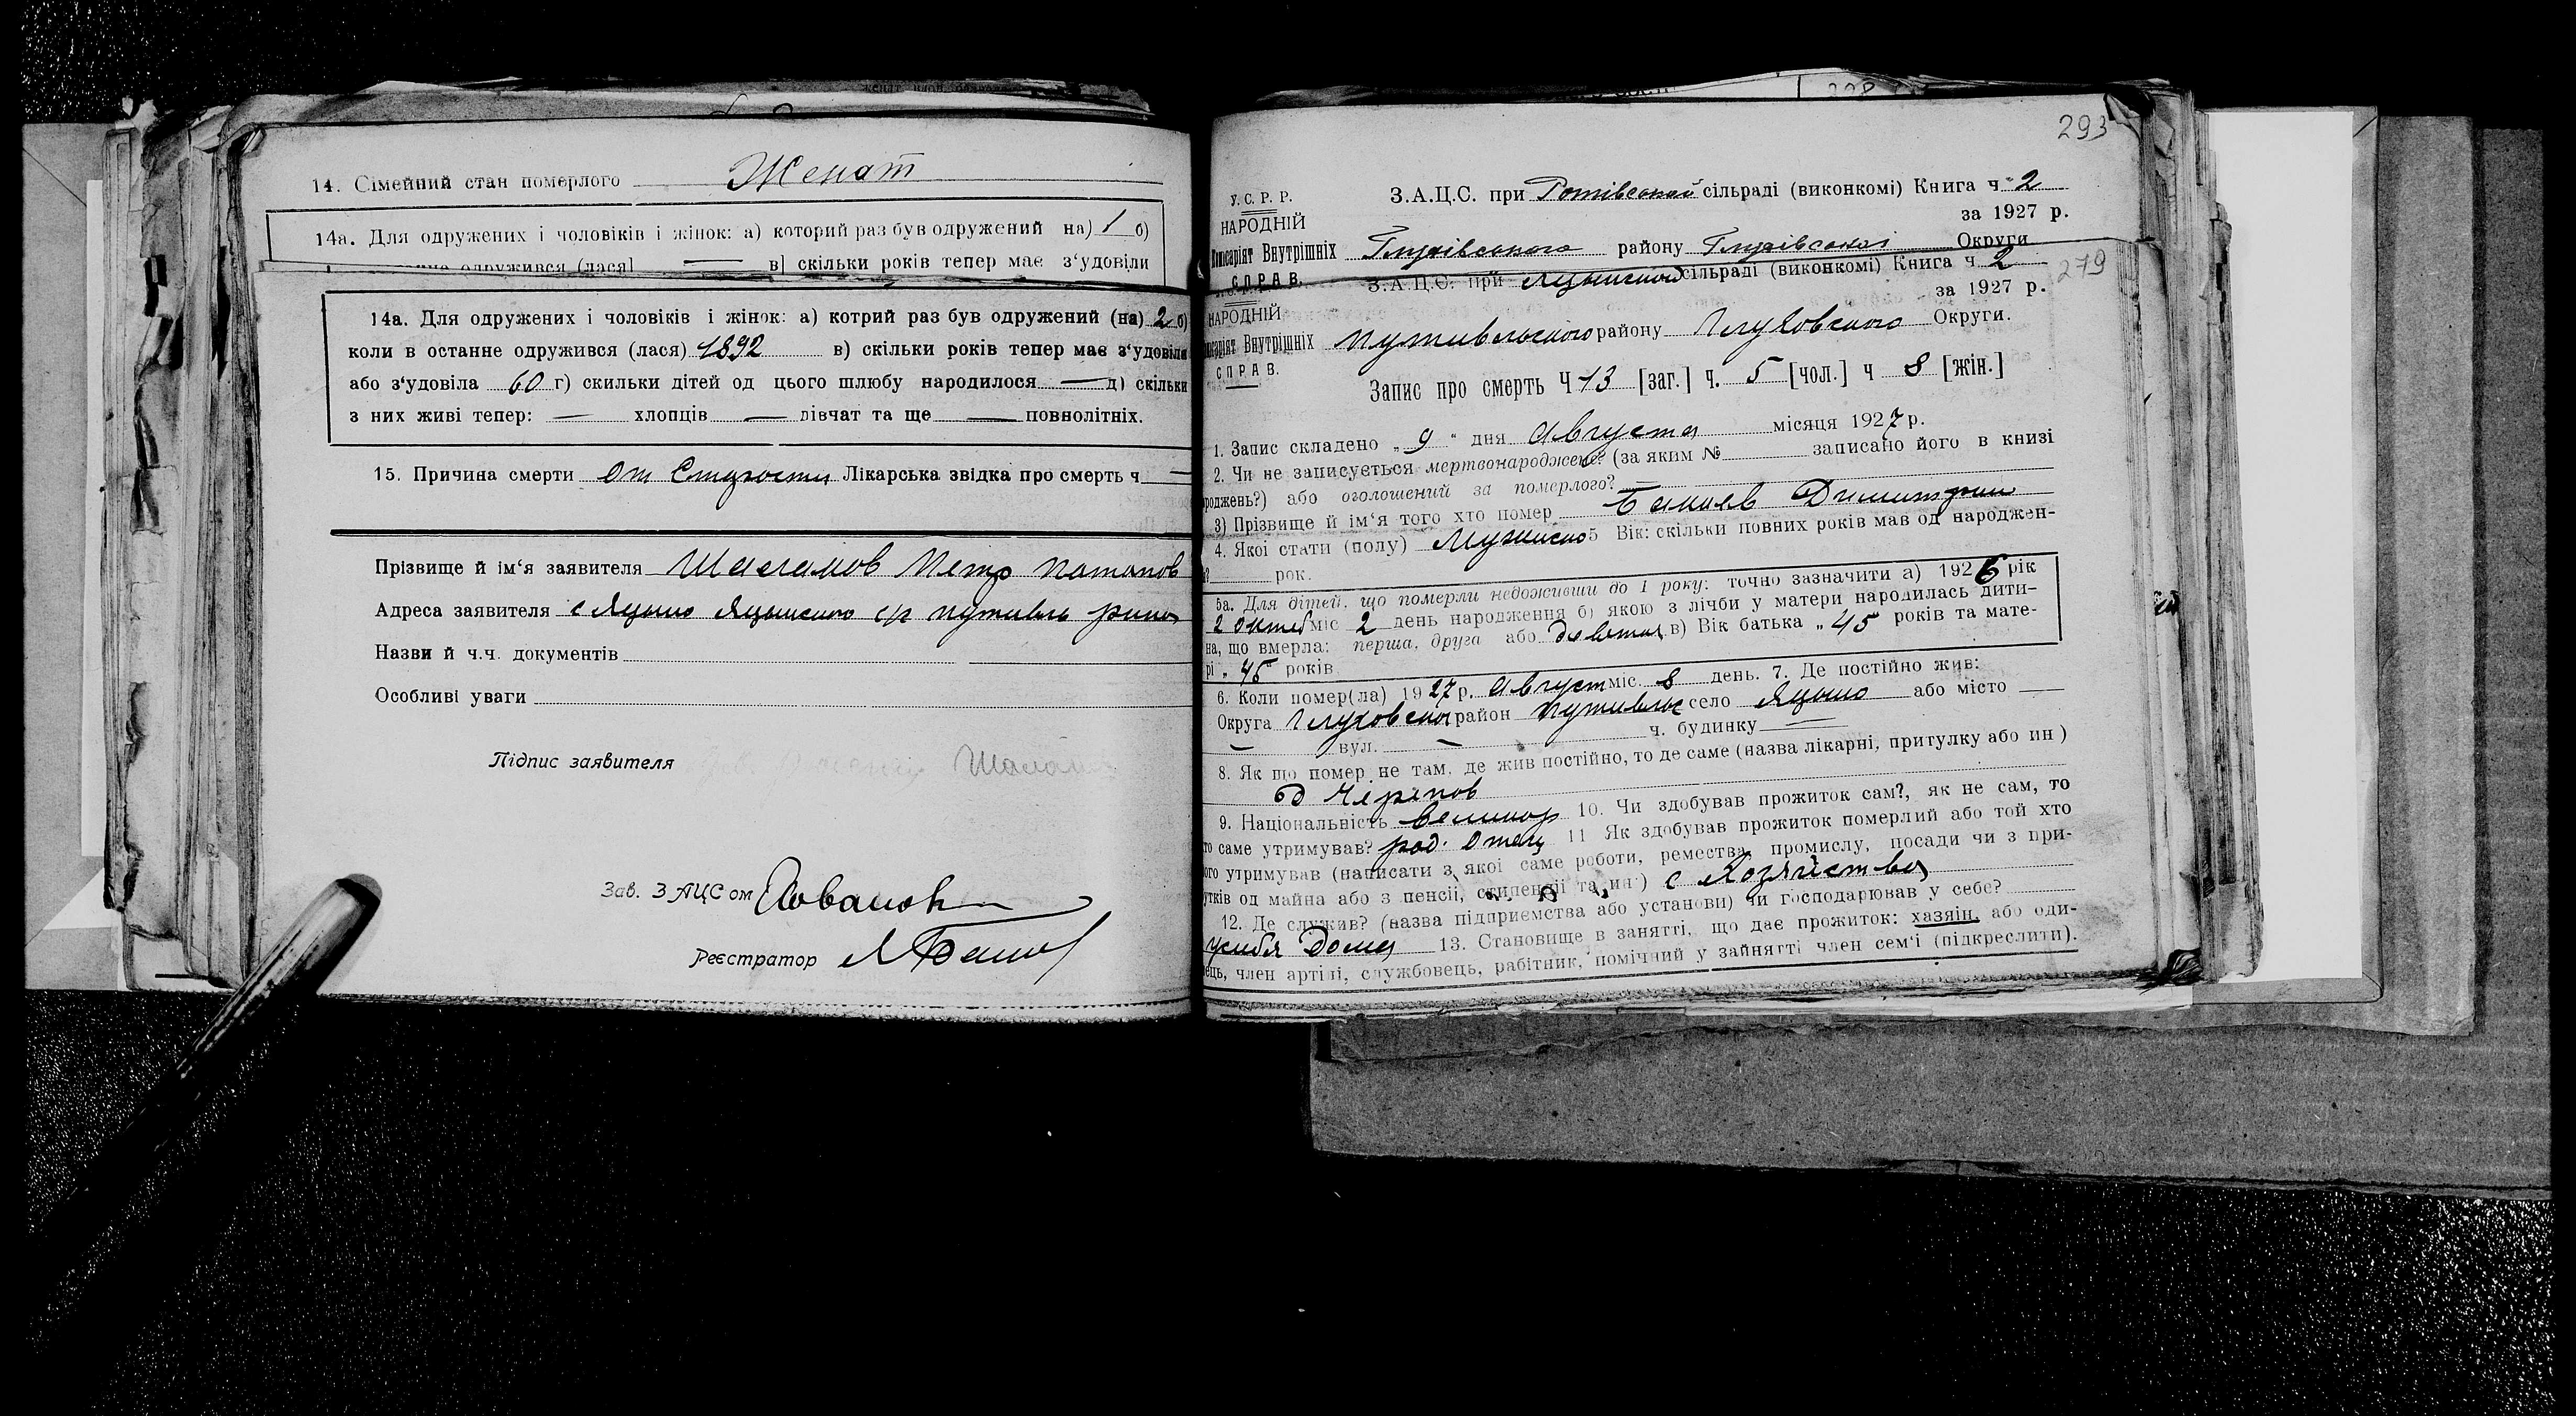 14. Сімейний стан померлого Женат
14а. Для одружених і чоловіків і жінок: а) которий раз був одружений на) 1 б)
одружився (лася] — в] скільки років тепер має з‘удовіли
14а. Для одружених і чоловіків і жінок: а) котрий раз був одружений (на) 2 б)
коли в останне одружився (лася) 1892 в) скільки років тепер має з‘удовіли
або з‘удовіла 60 г) скильки дітей од цього шлюбу народилося — д) скільки
з них живі тепер: — хлопців — дівчат та ще — повнолітніх.
15. Причина смерти от Старости Лікарська звідка про смерть ч —
Прізвище й ім‘я заявителя Шаламов Петр Потапов
Адреса заявителя с Яцыно Яцынского с/с путивль района
Назви й ч.ч. документів
Особливі уваги
Підпис заявителя
Зав. ЗАЦСом
Реєстратор
293
У. С. Р. Р.
НАРОДНІЙ
Комісаріят Внутрішніх
СПРАВ.
З.А.Ц.С. при сільраді (виконкомі) Книга ч 2
за 1927 р.
Глухівського району Глухівської Округи
279
НАРОДНІЙ
Внутрішніх
СПРАВ.
З.А.Ц.С. при Яцынской сільраді (виконкомі) Книга ч 2
за 1927 р.
путивльского району Глуховского Округи.
Запис про смерть Ч 13 [заг.] ч. 5 [чол.] ч 8 [жін.]
1. Запис складено „ 9 “ дня Августа місяця 1927 р.
2. Чи не записується мертвонароджене? (за яким № записано його в книзі
роджень?) або оголошений за померлого? —
3) Прізвище й ім‘я того хто помер Димитрий
4. Якої стати (полу) Мужиско 5 Вік: скільки повних років мав од народжен-
рок.
5а. Для дітей, що померли недоживши до 1 року: точно зазначити а) 1926 рік
2 октеб міс 2 день народження б) якою з лічби у матери народилась дити-
на, що вмерла: перша, друга або деветая в) Вік батька „ 45 років та мате-
рі „ 45 років
6. Коли помер(ла) 1927 р. Август міс. 8 день. 7. Де постійно жив:
Округа Глуховской район путивльс село Яцыно або місто —
— вул. — ч. будинку —
8. Як що помер не там, де жив постійно, то де саме (назва лікарні, притулку або ин )
9. Національність великор 10. Чи здобував прожиток сам?, як не сам, то
то саме утримував? род. Отец 11 Як здобував прожиток померлий або той хто
ого утримував (написати з якої саме роботи, ремества, промислу, посади чи з при-
утків од майна або з пенсії, стипендії та ин·) с Хозяйства
12. Де служив? (назва підприємства або установи) чи господарював у себе?
у себя Дома 13. Становище в занятті, що дає прожиток: хазяїн, або оди-
ець, член артілі, службовець, рабітник, помічний у зайнятті член сем‘ї (підкреслити).